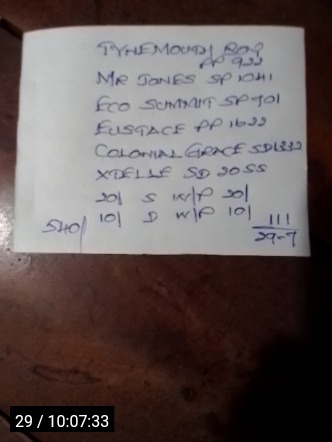 TYNEMOUTH BOY
PP 922
MR JONES SP 1041
ECO SUMMIT SP 901
EUSTACE PP 1622
COLONIAL GRACE SD 1332
XDELLE SD 2055
20/ S W/P 20/
10/ D W/P 10/
540/
111
29-7
29 / 10:07:33